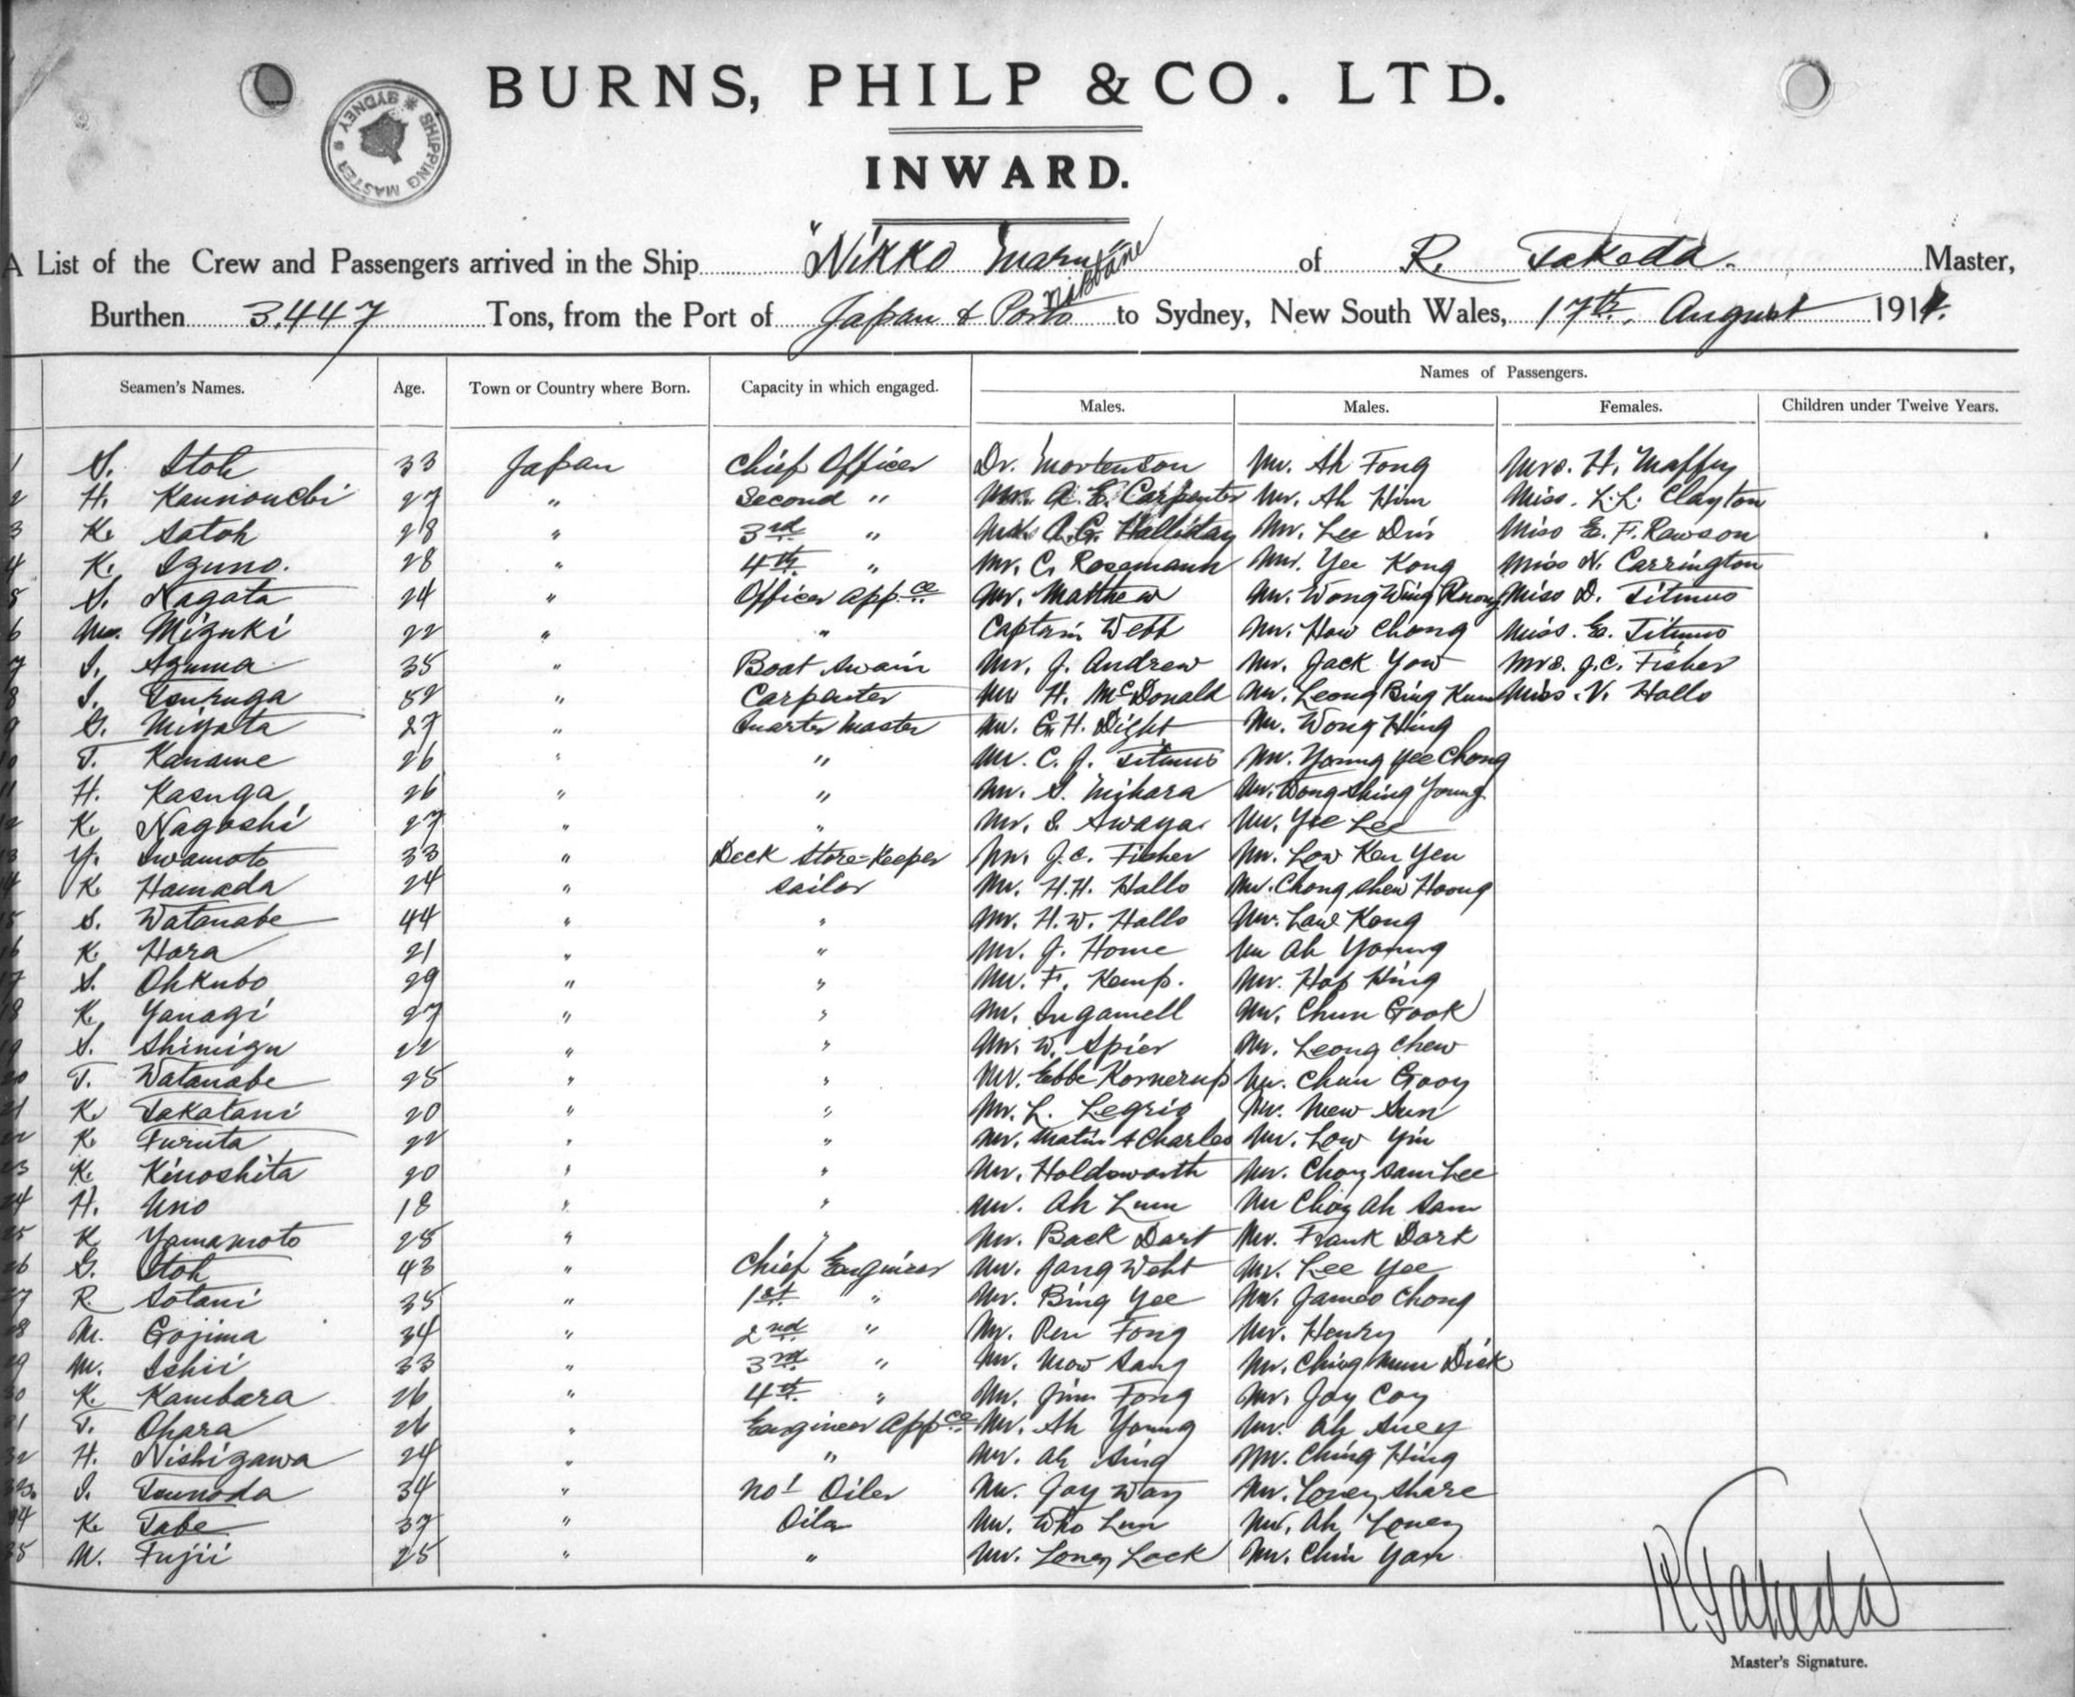 BURNS, PHILP & CO. LTD.
SHIPPING MASTER * SYDNEY *
INWARD.
A List of the Crew and Passengers arrived in the Ship "Nikko Maru" of R. Takeda. Master,
Burthen 3,447 Tons, from the Port of Japan & Ports via Brisbane to Sydney, New South Wales, 17th. August 1914.
Seamen's Names. Age. Town or Country where Born. Capacity in which engaged. Names of Passengers.
Males. Males. Females. Children under Twelve Years.
1 S. Itoh 33 Japan Chief Officer Dr. Mortenson Mr. Ah Fong Mrs. H. Maffey
2 H. Kannouchi 27 " Second " Mr. A. E. Carpenter Mr. Ah Him Miss. L.L. Clayton
3 K. Satoh 28 " 3rd " A.G. Halliday Mr. Lee Din Miss E. F. Rawson
4 K. Izuno. 28 " 4th " Mr. C. Rosemann Mr. Yee Kong Miss N. Carrington
5 S. Nagata 24 " Officer app.ce Mr. Matthew Mr. Wong Wing Miss D. Titmus
6 M. Mizuki 22 " " Captain Webb Mr. How Chong Miss. E. Titmus
7 I. Azuma 35 " Boat Swain Mr. J. Andrew Mr. Jack Yow Mrs. J.C. Fisher
8 I. Tsuruga 52 " Carpenter Mr H. McDonald Mr. Leong Bing Kum Miss. V. Hallo
9 G. Miyata 27 " Quarter Master Mr. G.H. Dight Mr. Wong Hing
10 T. Kaname 26 " " Mr. C. J. Titmus Mr. Young Yee Chong
11 H. Kasuga 26 " " Mr. S. Mihara Mr. Wong Shing Young
12 K. Nagoshi 27 " " Mr. S. Awaya Mr. Yee Lee
13 Y. Iwamoto 33 " Deck Store-Keeper Mr. J.C. Fisher Mr. Low Ken Yen
14 K. Hamada 24 " Sailor Mr. H.H. Hallo Mr. Chong Shew Hoong
15 S. Watanabe 44 " " Mr. H.W. Hallo Mr. Law Kong
16 K. Hara 21 " " Mr. J. Home Mr Ah Young
17 S. Ohkubo 29 " " Mr. F. Kemp. Mr. Hop Hing
18 K. Yanagi 27 " " Mr. Ingamell Mr. Chun Gook
19 S. Shimizu 22 " " Mr. W. Spier Mr. Leong Chew
20 T. Watanabe 25 " " Mr. Ebbe Kornerup Mr. Chun Gooy
21 K. Takatani 20 " " Mr. L. Legris Mr. Mew Sun
22 K. Furuta 22 " " Mr. Matin & Charles Mr. Low Yin
23 K. Kinoshita 20 " " Mr. Holdsworth Mr. Choy Sam Lee
24 H. Uno 18 " " Mr. Ah Lum Mr Choy Ah Sam
25 K. Yamamoto 28 " " Mr. Back Dart Mr. Frank Dark
26 G. Itoh 43 " Chief Engineer Mr. Jang Mr. Lee Yee
27 R. Sotani 35 " 1st " Mr. Bing Yee Mr. James Chong
28 M. Gojima 34 " 2nd " Mr. Pen Fong Mr. Henry
29 M. Ishii 33 " 3rd " Mr. Mow Sang Mr. Ching Mun Dick
30 K. Kambara 26 " 4th " Mr. Jim Fong Mr. Joy Coy
31 T. Ohara 26 " Engineer app.ce Mr. Ah Young Mr. Ah Suey
32 H. Nishizawa 24 " " Mr. Ah Sing Mr. Ching Hing
33. I. Tsunoda 34 " No 1 Oiler Mr. Joy Way Mr. Loney Share
34 K. Tabe 37 " Oiler Mr. Who Lun Mr. Ah Loney
35 U. Fujii 25 " " Mr. Loney Lock Mr. Chin Yan
R Takeda
Master's Signature.